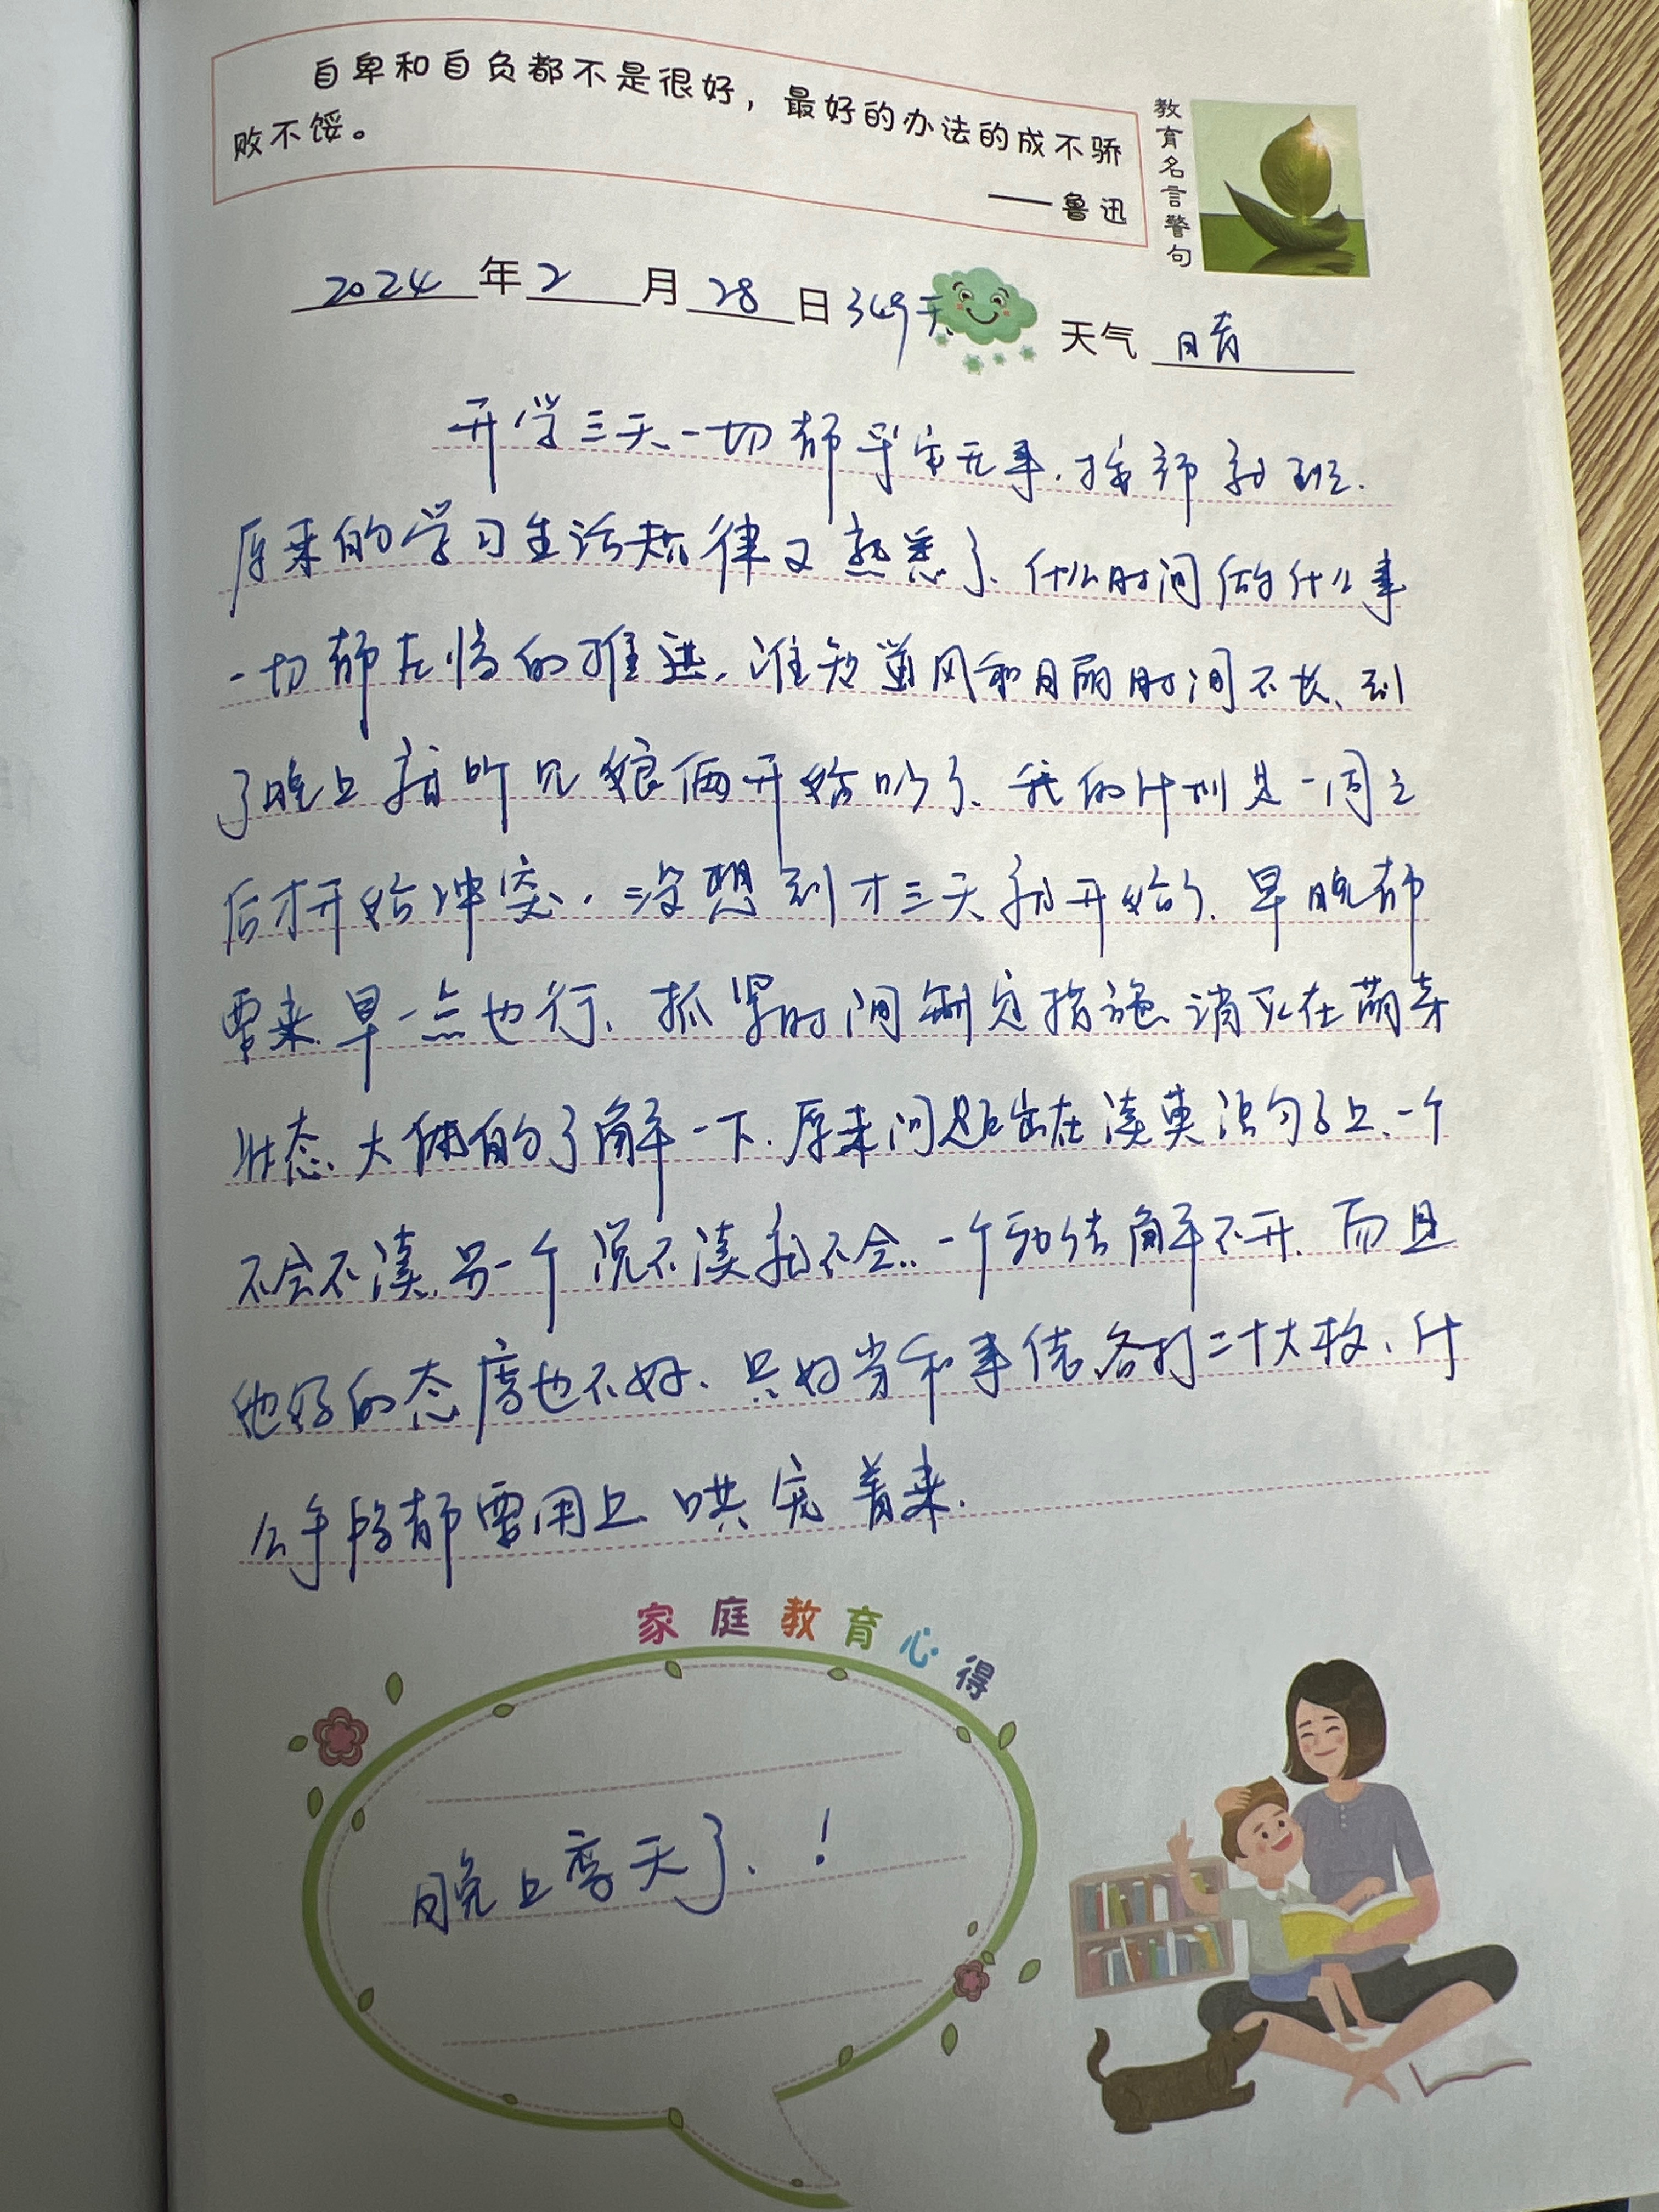 自卑和自负都不是很好，最好的办法的成不骄
败不馁。
——鲁迅
教育名言警句
2024年2月28日349天 天气 晴
开学三天、一切都平安无事.按部就班.
原来的学习生活规律又熟悉了、什么时间做什么事
一切都在悄的推进.谁知道风和日丽时间不长、到
了晚上就听见娘俩开始吵了、我的计划是一周之
后才开始冲突.没想到才三天就开始了.早晚都
要来.早一点也行、抓紧时间制定措施消灭在萌芽
状态、大体的了解一下.原来问题出在读英语句子上、一个
不会不读.另一个说不读就不会..一个死结解不开.而且
他好的态度也不好、只好当和事佬各打二十大板、什
么手段都要用上.哄完着来.
家庭教育心得
晚上变天了、!